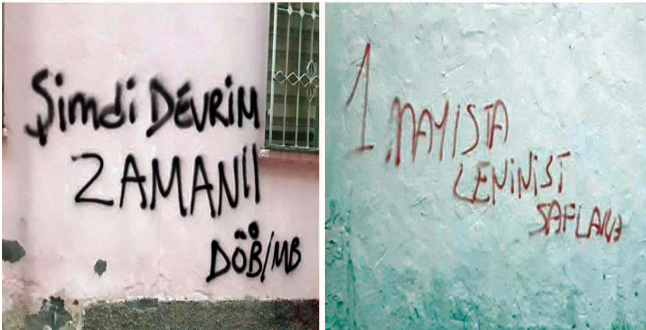 Şimdi DEVRİM
ZAMANI!
DÖB/MB
1 MAYISTA
LENİNİST
SAFLARA